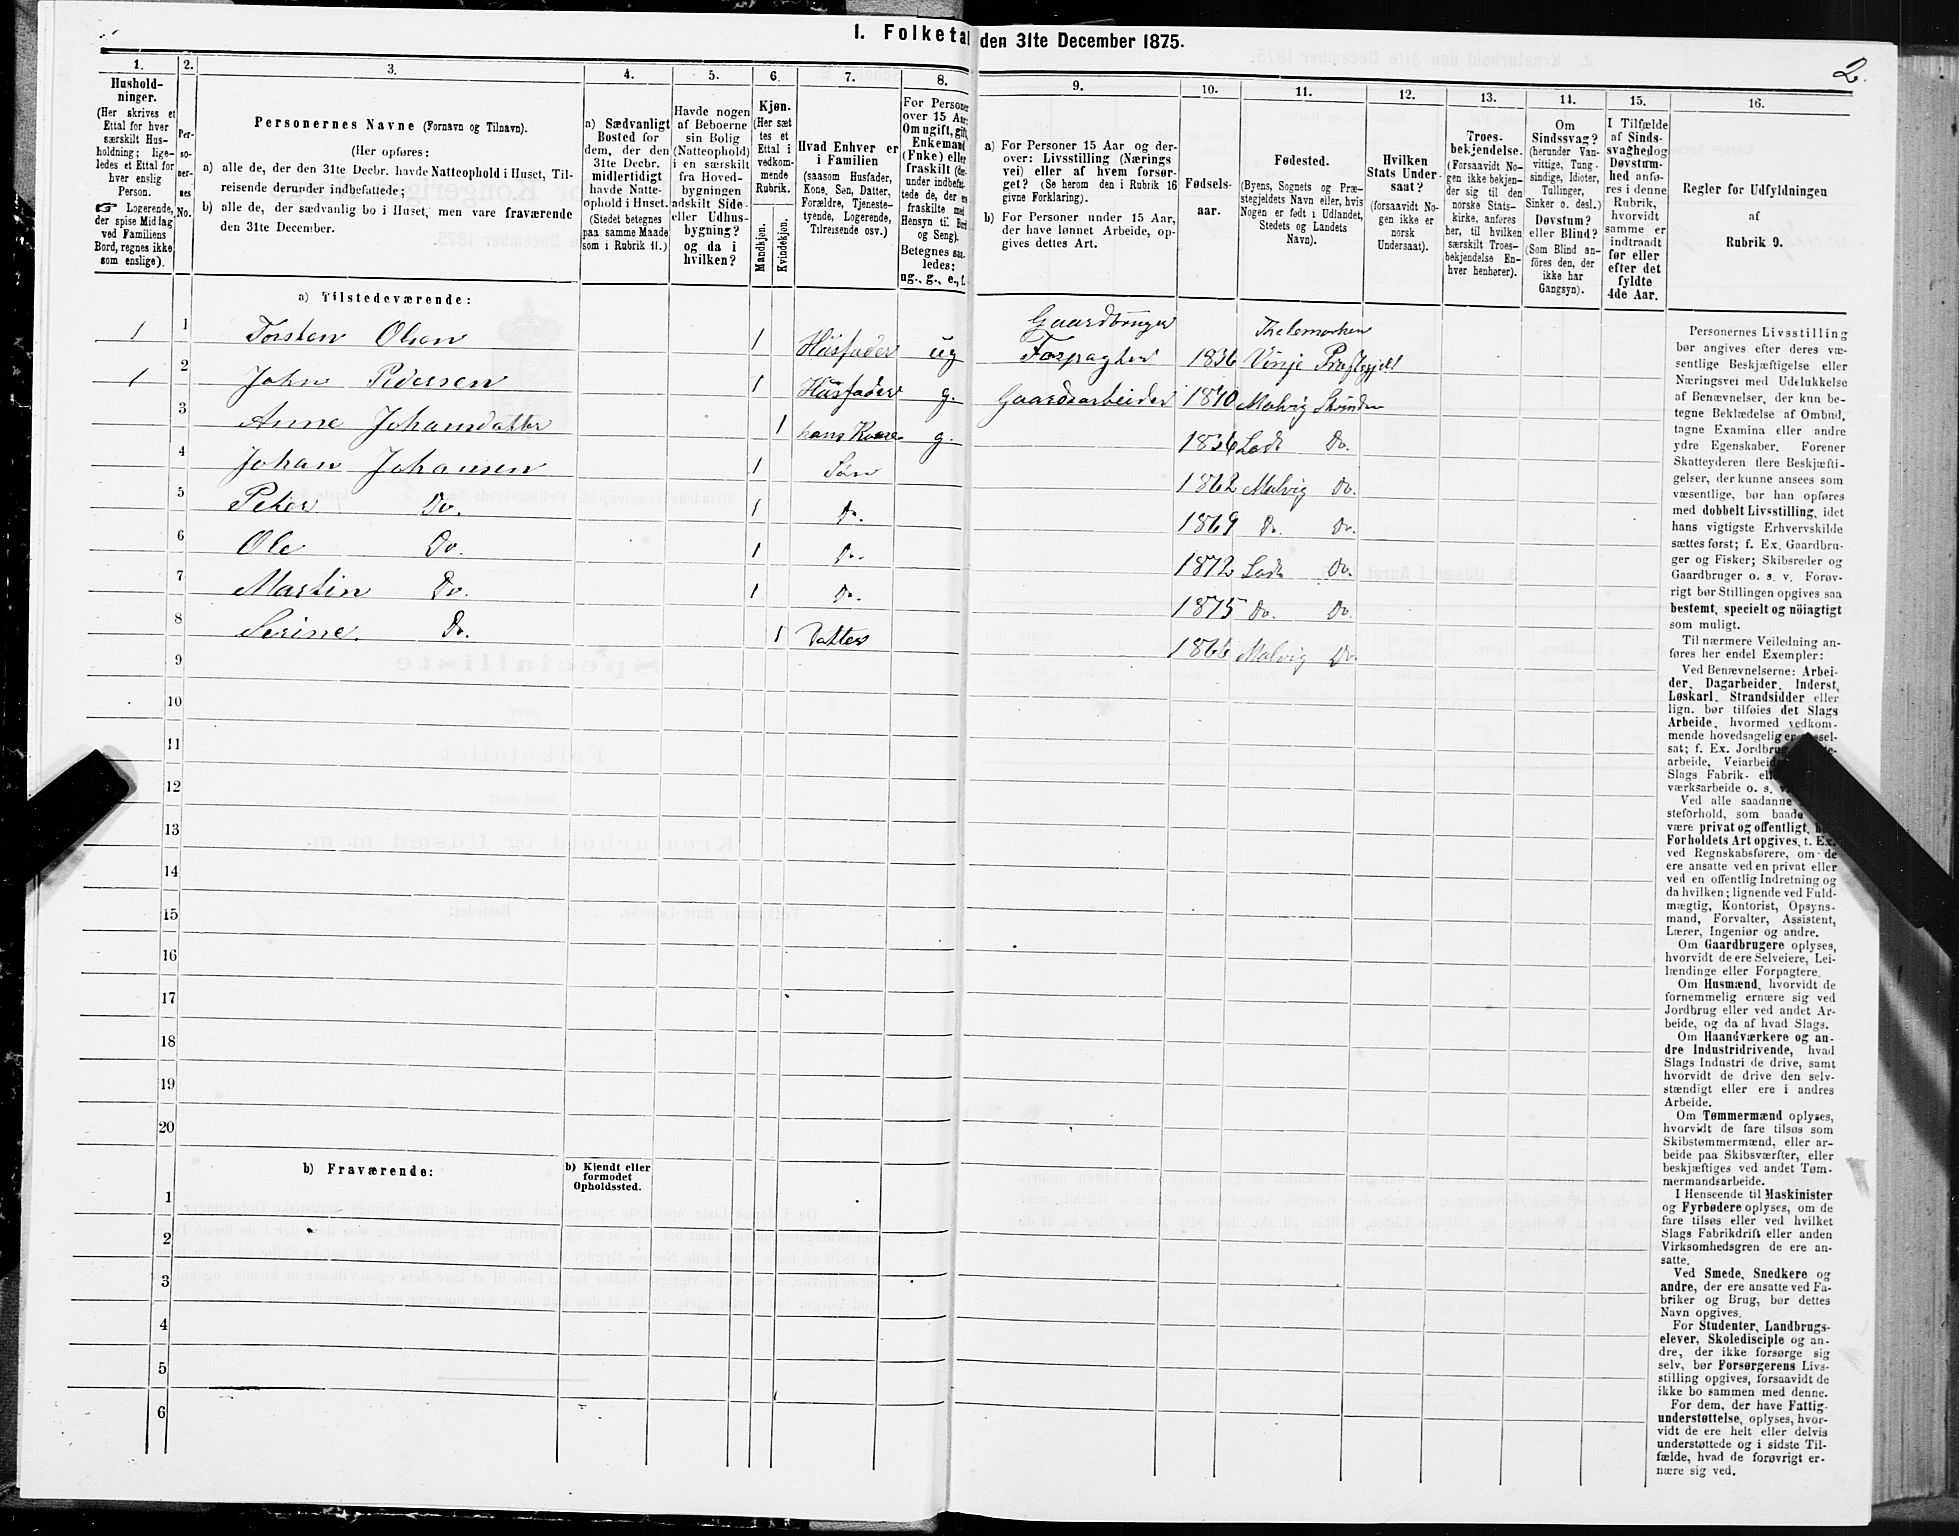 1. Folketal den 31te December 1875.
2.
1.
Hushold-
ninger.
(Her skrives et
Ettal for hver
særskilt Hus-
holdning; lige-
ledes et Ettal for
hver enslig
Person.
Logerende,
der spise Middag
ved Familiens
Bord, regnes ikke
som enslige).
2.
Per-
so-
ner-
nes
No.
3.
Personernes Navne (Fornavn og Tilnavn).
(Her opføres:
a) alle de, der den 31te Decbr. havde Natteophold i Huset, Til-
reisende derunder indbefattede;
b) alle de, der sædvanlig bo i Huset, men vare fraværende
den 31te December.
4.
a) Sædvanligt
Bosted for
dem, der den
31te Decbr.
midlertidigt
havde Natte-
ophold i Huset.
(Stedet betegnes
paa samme Maade
som i Rubrik 11.)
5.
Havde nogen
af Beboerne
sin Bolig
(Natteophold)
i en særskilt
fra Hoved-
bygningen
adskilt Side-
eller Udhus-
bygning?
og da i
hvilken?
6.
Kjøn.
(Her sæt
tes et
Ettal i
vedkom-
mende
Rubrik.
Mandkjøn.
Kvindekjøn.
7.
Hvad Enhver er
i Familien
(saasom Husfader,
Kone, Søn, Datter,
Forældre, Tjeneste-
tyende, Logerende,
Tilreisende osv.)
8.
For Personer
over 15 Aar:
Om ugift, gift,
Enkemand
(Enke) eller
fraskilt (der-
under indbefat-
tede de, der ere
fraskilte med
Hensyn til Bord
og Seng).
Betegnes saa-
ledes:
ug., g., e., f.
9.
a) For Personer 15 Aar og der-
over: Livsstilling (Nærings
vei) eller af hvem forsør-
get? (Se herom den i Rubrik 16
givne Forklaring).
b) For Personer under 15 Aar,
der have lønnet Arbeide, op-
gives dettes Art.
10.
Fødsels-
aar.
11.
Fødested.
(Byens, Sognets og Præ-
stegjeldets Navn eller, hvis
Nogen er født i Udlandet,
Stedets og Landets
Navn).
12.
Hvilken
Stats Under-
saat?
(forsaavidt No-
gen ikke er
norsk
Undersaat).
13.
Troes-
bekjendelse.
(Forsaavidt No-
gen ikke bekjen-
der sig til den
norske Stats-
kirke, anføres
her, til hvilken
særskilt Troes-
bekjendelse En-
hver henhører).
14.
Om
Sindssvag?
(herunder Van-
vittige, Tung-
sindige, Idioter,
Tullinger,
Sinker o. desl.)
Døvstum?
eller Blind?
(Som Blind an-
føres den, der
ikke har
Gangsyn).
15.
I Tilfælde
af Sinds-
svaghed og
Døvstum-
hed anfø-
res i denne
Rubrik,
hvorvidt
samme er
indtraadt
før eller
efter det
fyldte
4de Aar.
16.
Regler for Udfyldningen
af
Rubrik 9.
a) Tilstedeværende:
1 1 Torsten Olsen 1 Husfader ug Gaardbruger Forpagter 1836 Thelemarken Vinje Præstegjeld
1 2 John Pedersen 1 Husfader g. Gaardsarbeider 1840 Malvig Strinden
3 Anne Johansdatter 1 hans Kone g. 1836 Lade Do.
4 Johan Johansen 1 Søn 1862 Malvig Do.
5 Peter Do. 1 Do. 1869 Do. Do.
6 Ole Do. 1 Do. 1872 Lade Do.
7 Martin Do. 1 Do. 1875 Do. Do.
8 Serine Do. 1 Datter 1866 Malvig Do.
9
10
11
12
13
14
15
16
17
18
19
20
b) Fraværende:
b) Kjendt eller
formodet
Opholdssted.
1
2
3
4
5
6
Personernes Livsstilling
bør angives efter deres væ-
sentlige Beskjæftigelse eller
Næringsvei med Udelukkelse
af Benævnelser, der kun be-
tegne Beklædelse af Ombud,
tagne Examina eller andre
ydre Egenskaber. Forener
Skatteyderen flere Beskjæfti-
gelser, der kunne ansees som
væsentlige, bør han opføres
med dobbelt Livsstilling, idet
hans vigtigste Erhvervskilde
sættes først; f. Ex. Gaardbru-
ger og Fisker; Skibsreder og
Gaardbruger o. s. v. Forøv-
rigt bør Stillingen opgives saa
bestemt, specielt og nöiagtigt
som muligt.
Til nærmere Veiledning an-
føres her endel Exempler:
Ved Benævnelserne: Arbei-
der, Dagarbeider, Inderst,
Løskarl, Strandsidder eller
lign. bør tilføies det Slags
Arbeide, hvormed vedkom-
mende hovedsagelig er
sat; f. Ex. Jordbrug,
arbeide, Veiarbeide
Slags Fabrik-
værksarbeide o. s. v.
Ved alle saadanne
steforhold, som baade
være privat og offentligt,
Forholdets Art opgives, t. Ex.
ved Regnskabsførere, om de
ere ansatte ved en privat eller
ved en offentlig Indretning og
da hvilken; lignende ved Fuld-
mægtig, Kontorist, Opsyns-
mand, Forvalter, Assistent,
Lærer, Ingeniør og andre.
Om Gaardbrugere oplyses,
hvorvidt de ere Selveiere, Lei-
lændinge eller Forpagtere.
Om Husmænd, hvorvidt de
fornemmelig ernære sig ved
Jordbrug eller ved andet Ar-
beide, og da af hvad Slags.
Om Haandværkere og an-
dre Industridrivende, hvad
Slags Industri de drive, samt
hvorvidt de drive den selv-
stændigt eller ere i andres
Arbeide.
Om Tømmermænd oplyses,
hvorvidt de fare tilsøs som
Skibstømmermænd, eller ar-
beide paa Skibsværfter, eller
beskjæftiges ved andet Tøm-
mermandsarbeide.
I Henseende til Maskinister
og Fyrbødere oplyses, om de
fare tilsøs eller ved hvilket
Slags Fabrikdrift eller anden
Virksomhedsgren de ere an-
satte.
Ved Smede, Snedkere og
andre, der ere ansatte ved Fa-
briker og Brug, bør dettes
Navn opgives.
For Studenter, Landbrugs-
elever, Skoledisciple og an-
dre, der ikke forsørge sig
selv, bør Forsørgerens Livs-
stilling opgives, forsaavidt de
ikke bo sammen med denne.
For dem, der have Fattig-
understøttelse, oplyses, hvor-
vidt de ere helt eller delvis
understøttede og i sidste Til-
fælde, hvad de forøvrigt er-
nære sig ved.